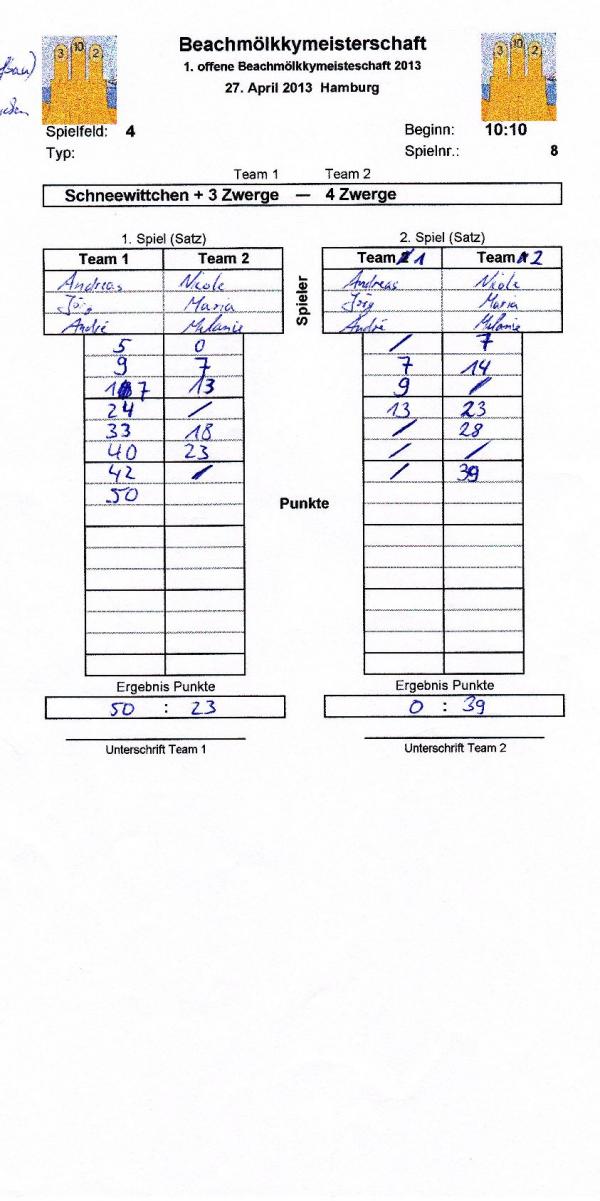 3 10 2
3 10 2
Beachmölkkymeisterschaft
1. offene Beachmölkkymeisteschaft 2013
27. April 2013 Hamburg
Spielfeld: 4 Beginn: 10:10
Typ: Spielnr.: 8
Team 1 Team 2
Schneewittchen + 3 Zwerge — 4 Zwerge
1. Spiel (Satz) 2. Spiel (Satz)
Team 1 Team 2 Team 1 Team 2
Andreas Nicole Andreas Nicole
Jörg Maria Jörg Maria
André Melanie André Melanie
Spieler
5 0 / 7
9 7 7 14
17 13 9 /
24 / 13 23
33 18 / 28
40 23 / /
42 / / 39
50
Punkte
Ergebnis Punkte Ergebnis Punkte
50 : 23 0 : 39
Unterschrift Team 1 Unterschrift Team 2